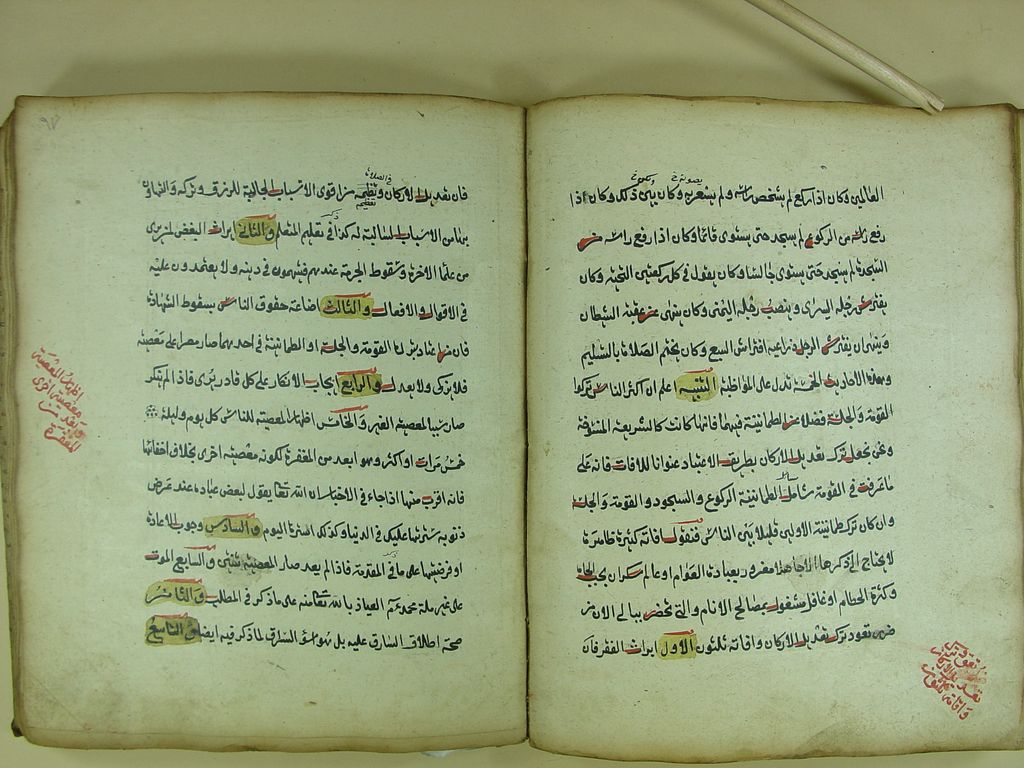 العالمين وكان اذا ركع لم يشخص راسه ولم يصوبه وكان بين ذلك وكان اذا
رفع راسه من الركوع لم يسجد حتى يستوى قائما وكان اذا رفع راسه من
السجدة لم يسجد حتى يستوى جالسا وكان يقول في كل ركعتين التحية وكان
يفترش رجله اليسرى وينصب رجله اليمنى وكان ينهى عن عقبة الشيطان
وينهى ان يفترش الرجل ذراعيه افتراش السبع وكان يختم الصلاة بالتسليم
وهذه الاحاديث الخمسة تدل على المواظبة التنبيه اعلم ان اكثر الناس تركوا
القومة والجلسة فضلا عن الطمانينة فيهما فانها كانت كالشريعة المنسوخة
ونحن نجعل ترك تعديل الاركان بطريق الاعتياد عنوانا للافات فانه على
ما عرفت في القومة شامل لطمانينة الركوع والسجود والقومة والجلسة
وان كان ترك طمانينة الاولين قليلا بين الناس فنقول افاته كثيرة ظاهرة
لا يحتاج الى ذكرها الا جاهل مغرور بعبادة العوام او عالم سكران بحب الجاه
وكثرة الحطام او غافل مشغول بمصالح الانام والتي تحضر ببالي الان من
ضرر تعود ترك تعديل الاركان وافاته ثلثون الاول ايراث الفقر فان
تعود ترك
تعديل الاركان
وافاته ثلثون
فان تعديل الاركان وتعظيمه من اقوى الاسباب الجالبة للرزق وتركه والتهاون
في الصلاة
به من الاسباب السالبة له كذا في تعليم المتعلم والثاني ايراث البغض لمن يرى
من علماء الاخرة وسقوط الحرمة عندهم فيتهمون في دينه ولا يعتمدون عليه
في الاقوال والافعال والثالث اضاعة حقوق الناس بسقوط الشهادة
فان من اعتاد ترك القومة والجلسة او الطمانينة في احدهما صار مصرا على معصية
فلا يزكى ولا يعدل والرابع ايجاب الانكار على كل قادر يرى فاذا لم ينكر
صار سببا لمعصية الغير والخامس اظهار المعصية للناس كل يوم وليلة
خمس مرات او اكثر وهو ابعد من المغفرة لكونه معصية اخرى بخلاف اخفائها
فانه اقرب منها اذ جاء في الاخبار ان الله تعالى يقول لبعض عباده عند عرض
ذنوبه سترتها عليك في الدنيا وكذلك استرها اليوم والسادس وجوب الاعادة
او فرضيتها على ما في المقدمة فاذا لم يعد صار المعصية ثنتين والسابع الموت
على غير ملة محمد عم العياذ بالله تعالى منه على ما ذكر في المطلب والثامن
صحة اطلاق السارق عليه بل هو اسوأ السراق لما ذكر فيه ايضا والتاسع
اظهار المعصية
معصية اخرى
وابعد من
المغفرة
٩٧